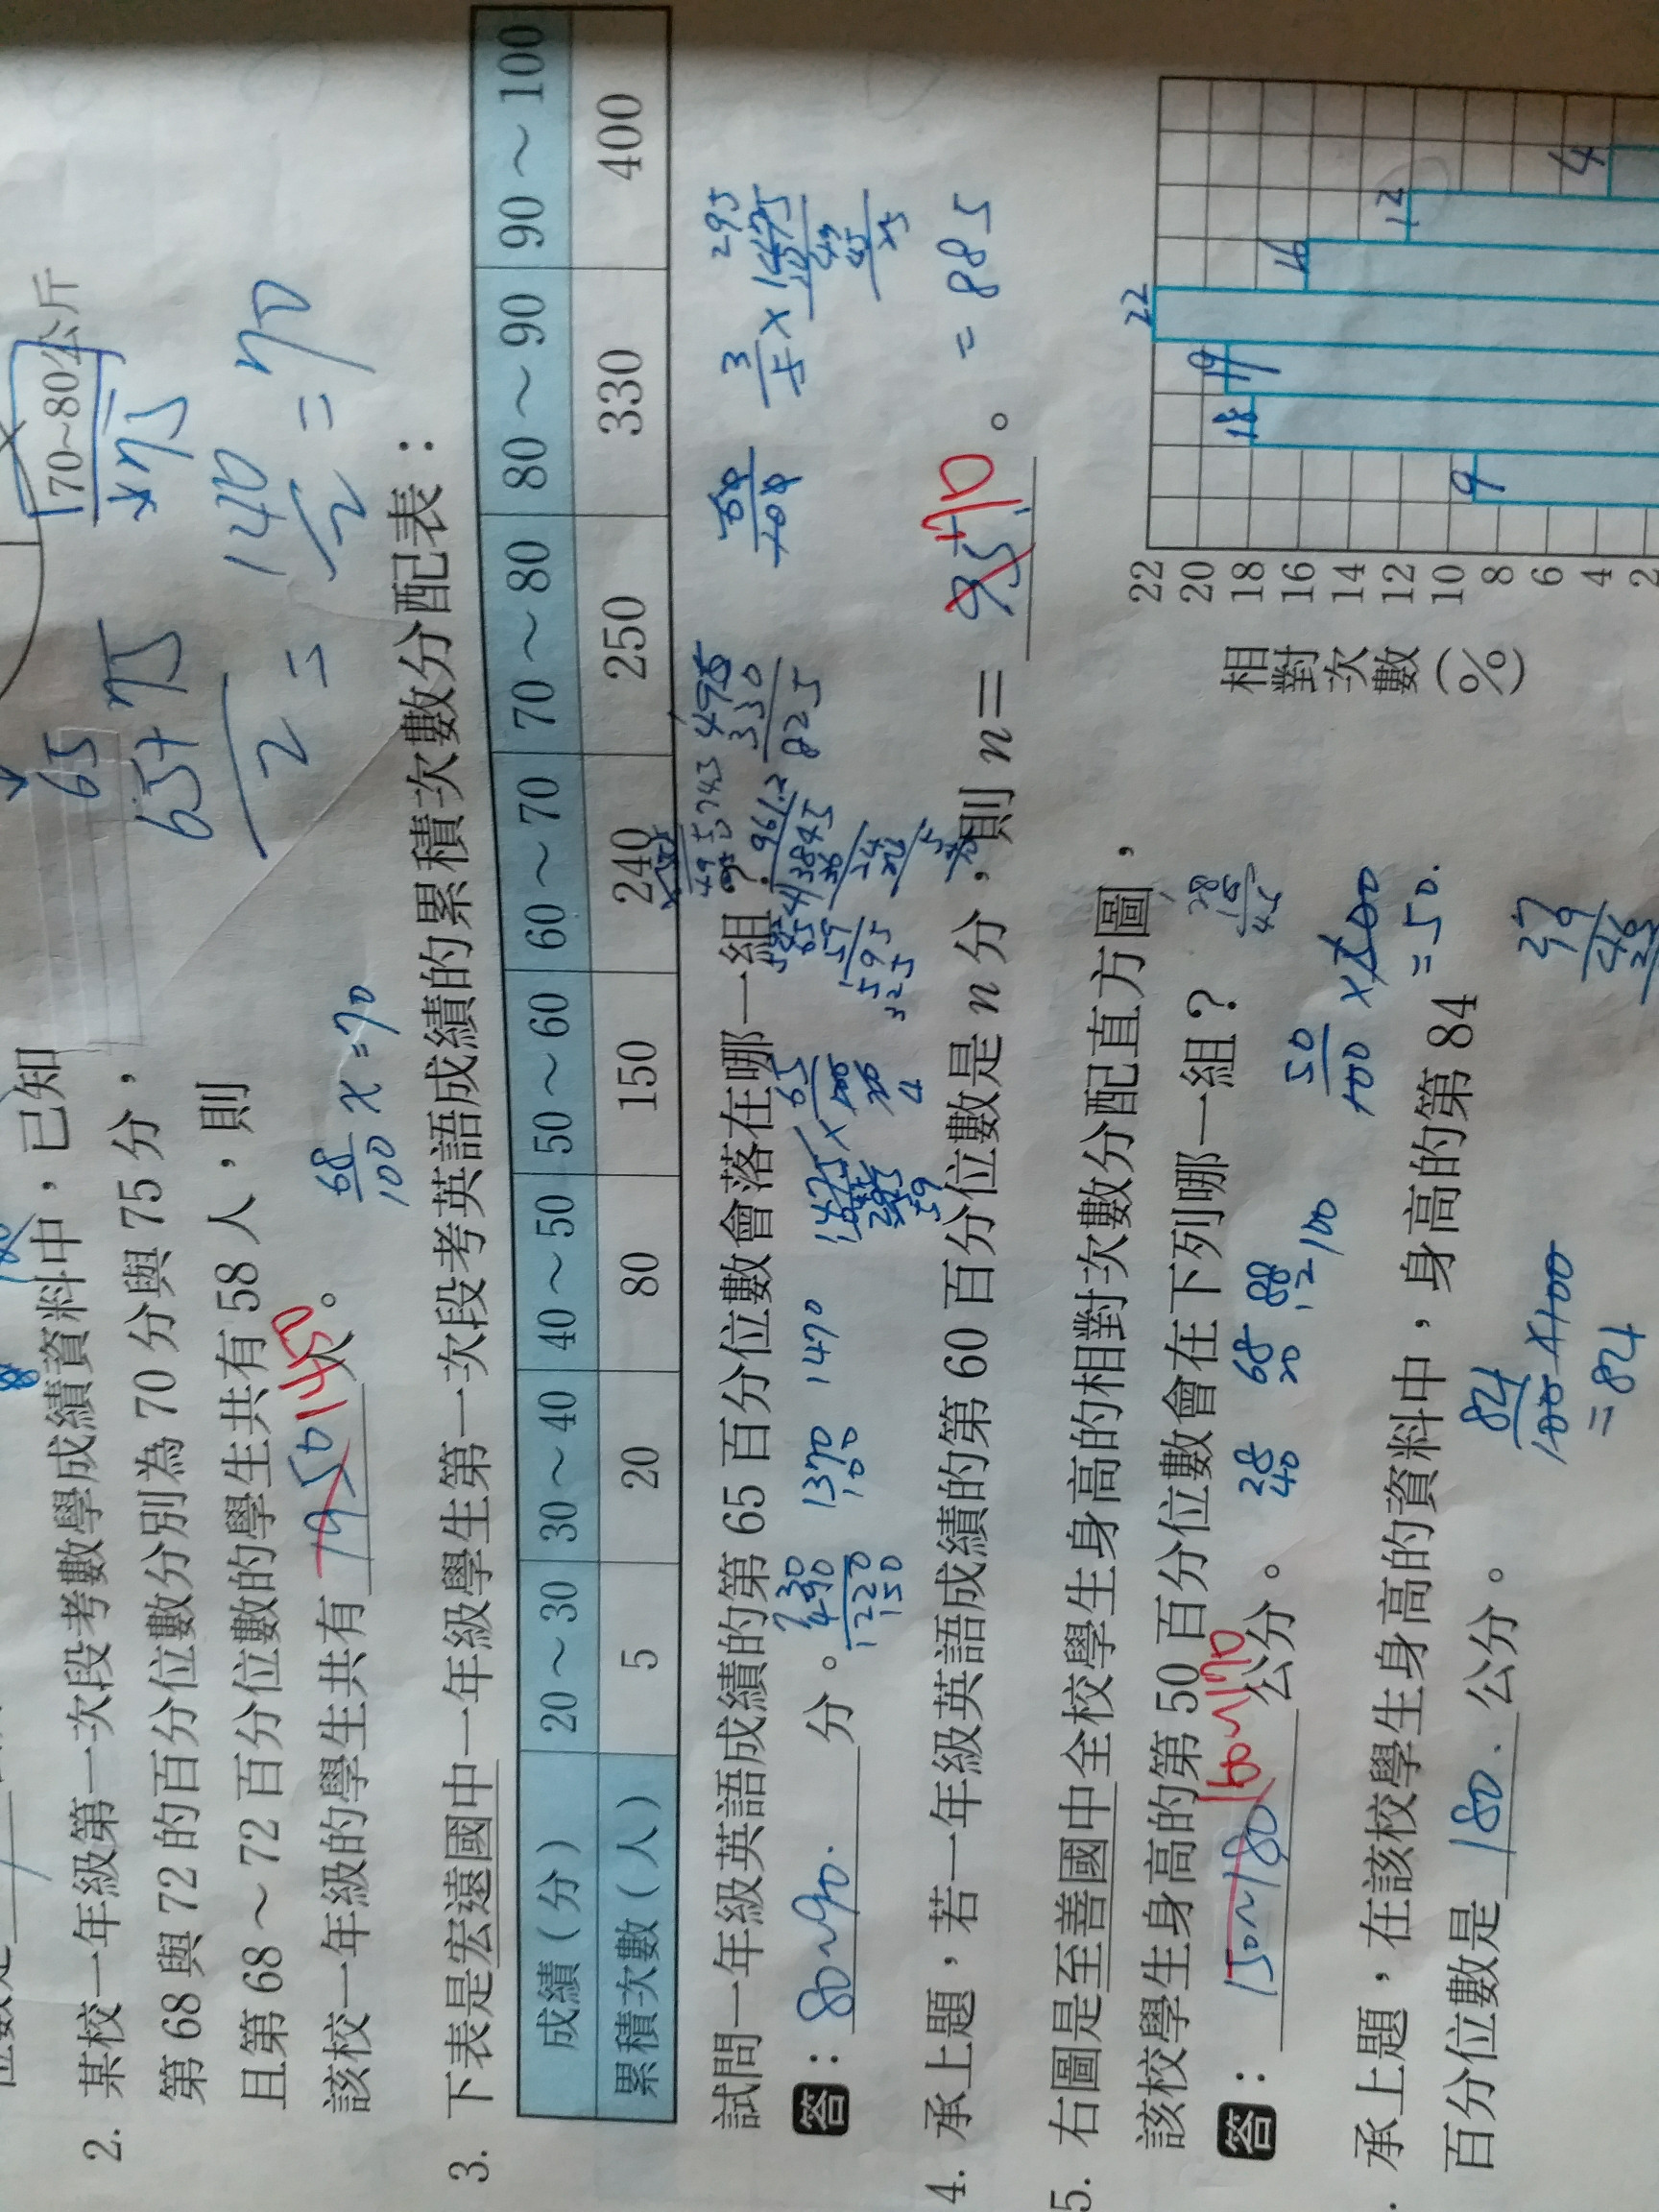 70~80公斤
65
65+75
75
2
=
140
2
=70
2. 某校一年級第一次段考數學成績資料中，已知
第 68 與 72 的百分位數分別為 70 分與 75 分，
且第 68 ~ 72 百分位數的學生共有 58 人，則
該校一年級的學生共有 1950 1450 人。
68
100 x=70
3. 下表是宏遠國中一年級學生第一次段考英語成績的累積次數分配表：
成績（分） 20 ~ 30 30 ~ 40 40 ~ 50 50 ~ 60 60 ~ 70 70 ~ 80 80 ~ 90 90 ~ 100
累積次數（人） 5 20 80 150 240 250 330 400
試問一年級英語成績的第 65 百分位數會落在哪一組？
答：80~90. 分。
730
490
1220
150
1370
100
1470
1475 × 65
100
59
961.2
3845
495
330
825
60
100
3
5 × 1475
295
=885
4. 承上題，若一年級英語成績的第 60 百分位數是 n 分，則 n= 70。
5. 右圖是至善國中全校學生身高的相對次數分配直方圖，
該校學生身高的第 50 百分位數會在下列哪一組？
答：150~180 160~170 公分。
28 68 88
40 20 12 100
28
18
45
50
100 ×100
=50.
相對次數(%)
22
20
18
16
14
12
10
8
6
4
2
9 18 19 22 16 12 4
承上題，在該校學生身高的資料中，身高的第 84
百分位數是 180. 公分。
84
100 ×100
=84
27
9